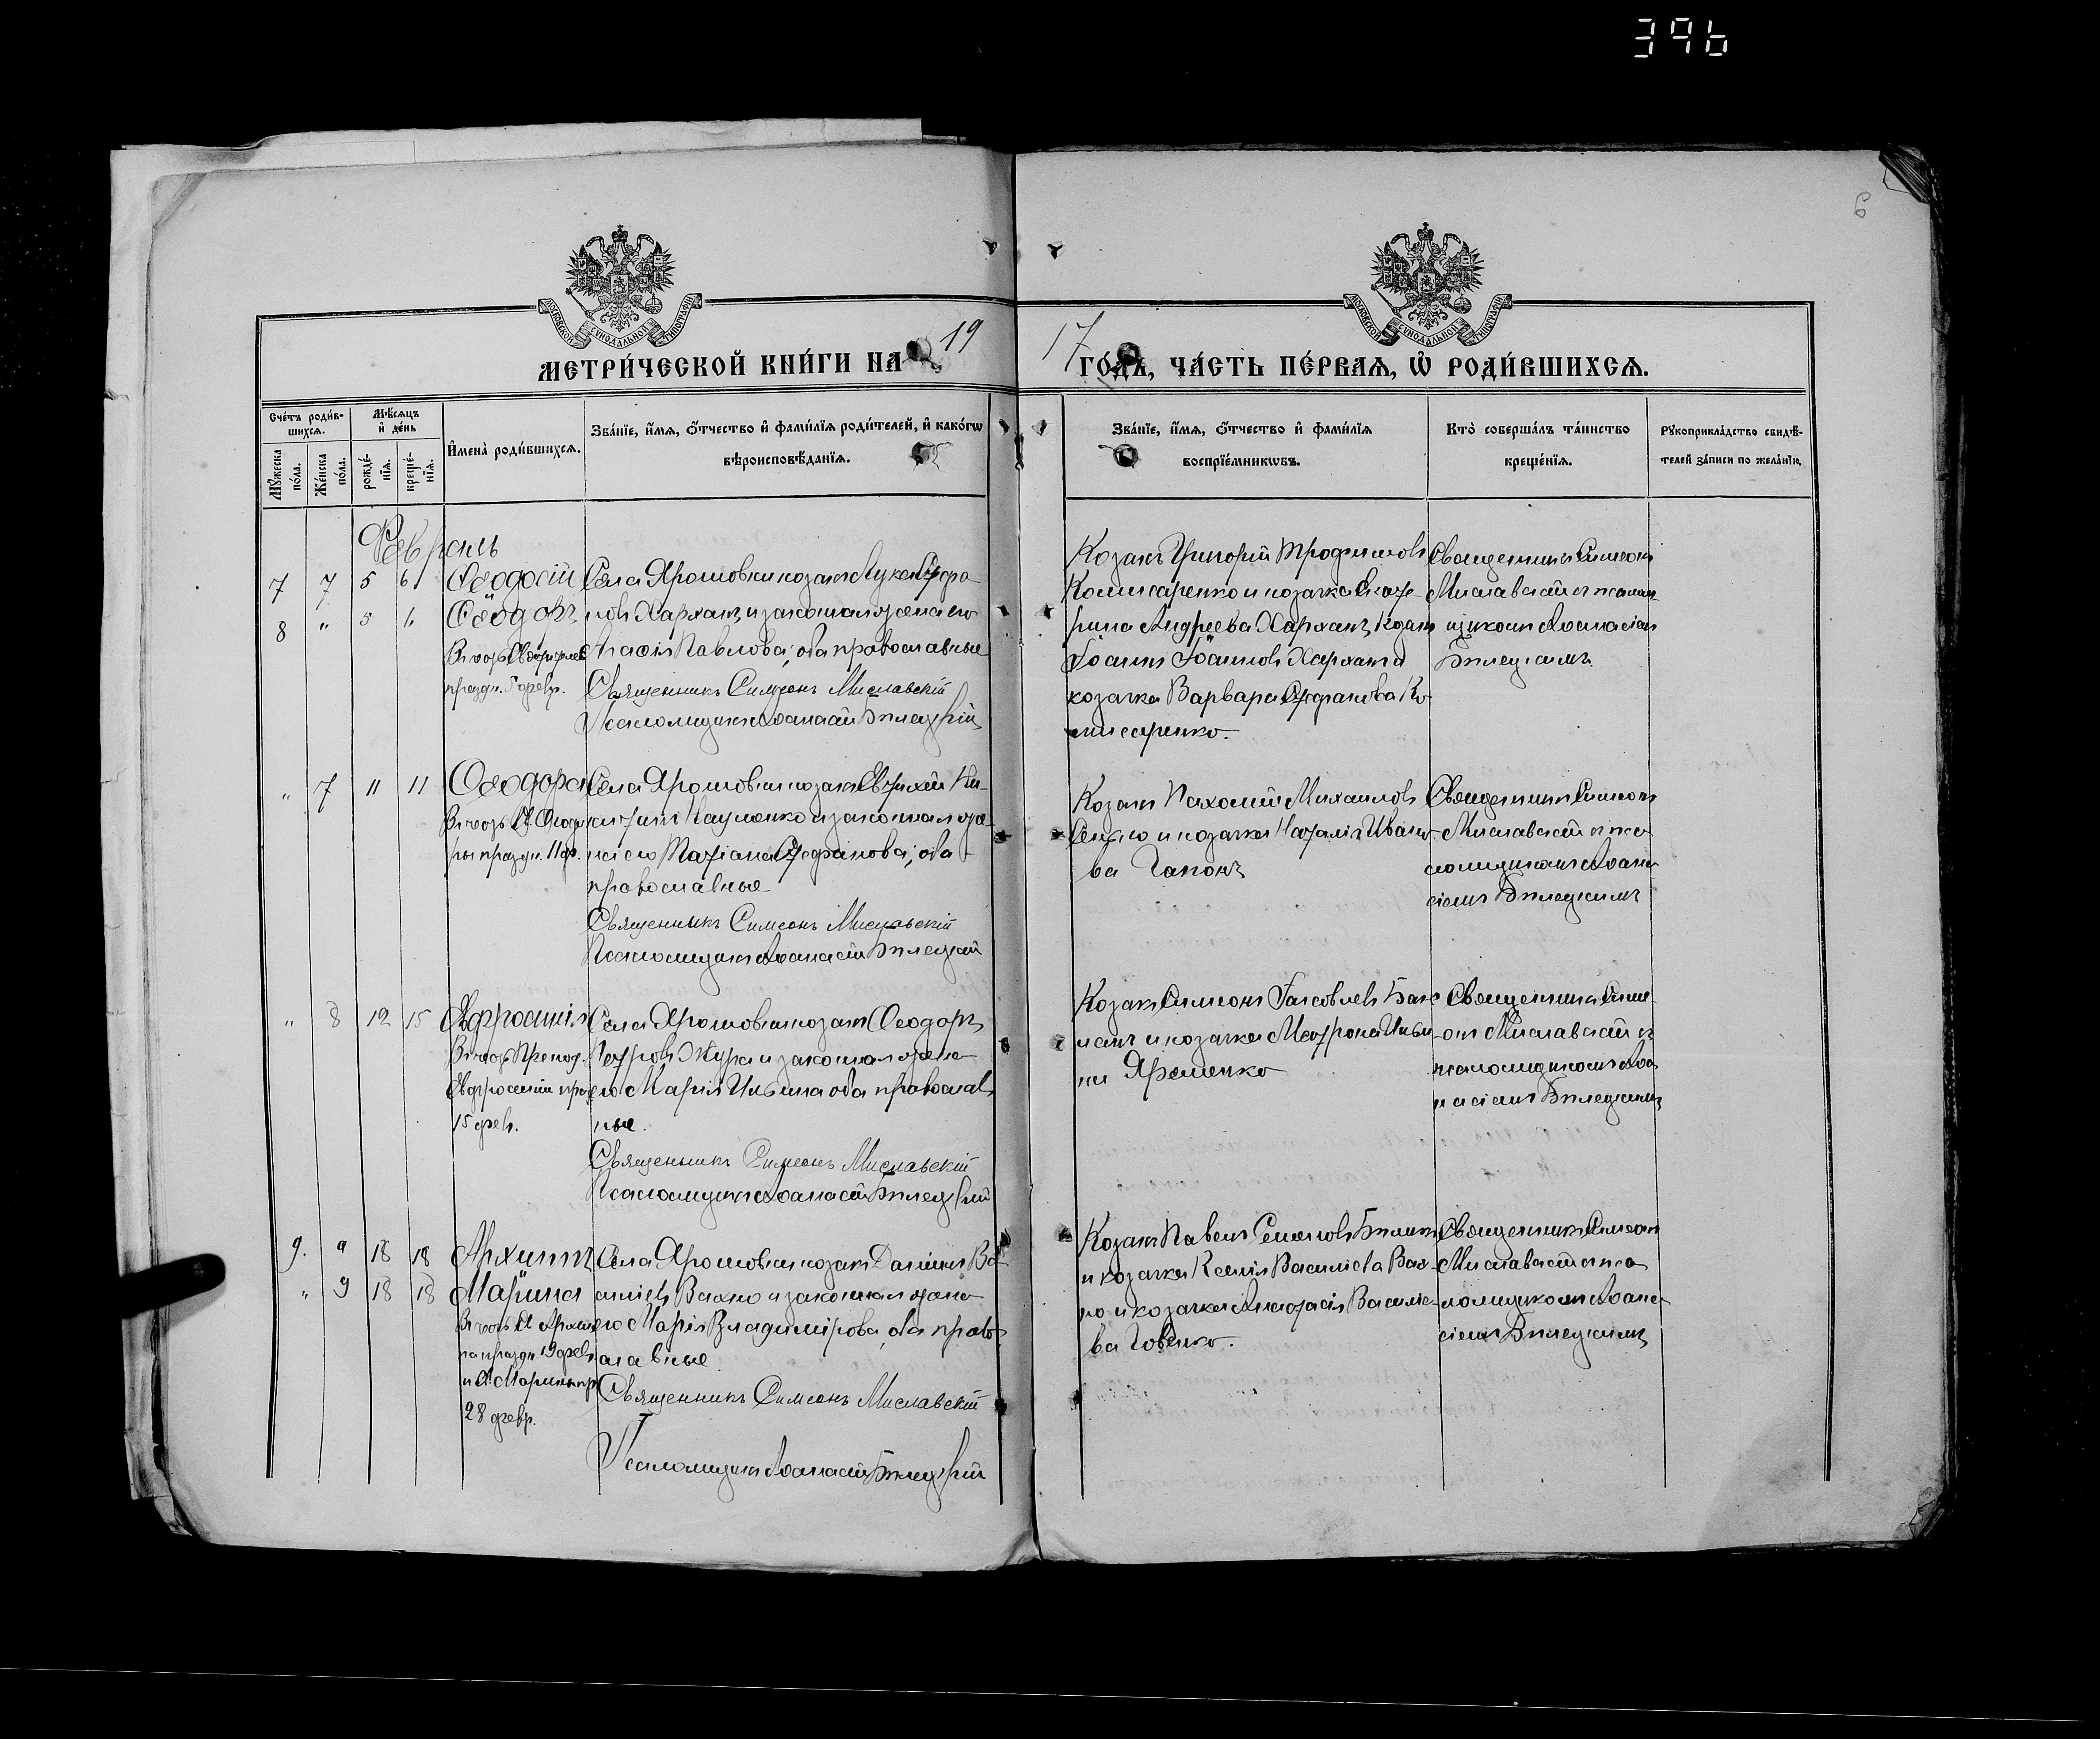 396
6
МОСКОВСКОЙ СѴНОДАЛЬНОЙ ТИПОГРАФІИ
МОСКОВСКОЙ СѴНОДАЛЬНОЙ ТИПОГРАФІИ
МЕТРИ́ЧЕСКОЙ КНИ́ГИ НА 19
17 ГО́ДЪ, ЧА́СТЬ ПЕ́РВАЯ, Ѽ РОДИ́ВШИХСЯ.
Сче́тъ роди́в-
шихся.
Мѣ́сяцъ
и҆ де́нь
Мꙋ́жеска
по́ла.
Же́нска
по́ла.
рожде́-
нїѧ.
креще́-
нїѧ.
И҆мена̀ роди́вшихся.
Зва́нїе, и҆́мя, ѻ҆́тчество и҆ фами́лїя роди́телей, и҆ како́гѡ
вѣроисповѣ́данїя.
Зва́нїе, и҆́мя, ѻ҆́тчество и҆ фами́лїя
воспрїе́мникѡвъ.
Кто̀ соверша́лъ та́инство
креще́нїя.
Рꙋкоприкла́дство свидѣ́-
телей за́писи по жела́нїю.
Февраль
7 7 5 6 Ѳеодосій
8 " 5 6 Ѳеодоръ
праздн. 5 февр.
Села Ярошовки козакъ Лука Стефа-
новъ Харханъ и законная жена его
Агаѳія Павлова, оба православные
Священникъ Симеонъ Миславскій
Псаломщикъ Аѳанасій Билецкій
Козакъ Григорій Трофимовъ
Комисаренко и козачка Екате-
рина Андреева Харханъ, козакъ
Іоаннъ Іоанновъ Харханъ и
козачка Варвара Стефанова Ко-
мисаренко.
Священникъ Симеонъ
Миславскій съ псалом-
щикомъ Аѳанасіемъ
Билецкимъ.
" 7 11 11 Ѳеодора
Въ честь Св. Ѳеодо-
ры праздн. 11 ф.
Села Ярошовки козакъ Евтихій Ни-
китинъ Науменко и законная же-
на его Татіана Стефанова, оба
православные
Священникъ Симеонъ Миславскій
Псаломщикъ Аѳанасій Билецкій
Козакъ Пахомій Михаиловъ
и козачка Наталія Ивано-
ва Гапонъ
Священникъ Симеонъ
Миславскій съ пса-
ломщикомъ Аѳана-
сіемъ Билецкимъ
" 8 12 15 Евфросинія
Въ честь Препод.
Евфросиніи пра.
15 фев.
Села Ярошовки козакъ Ѳеодоръ
Петровъ Жура и законная жена
его Марія Ильина оба православ-
ные.
Священникъ Симеонъ Миславскій
Псаломщикъ Аѳанасій Билецкій
Козакъ Симеонъ Іаковлевъ Бак-
и козачка Матрона Ильи-
на Яременко
Священникъ Симе-
онъ Миславскій съ
псаломщикомъ Аѳа-
насіемъ Билецкимъ
9. " 18 18 Архиппъ
" 9 18 18 Марина
Въ честь Св. Архип-
па праздн. 19 фев.
и Св. Марины пр.
28 февр.
Села Ярошовки козакъ Даніилъ Ва-
силіевъ Вахно и законная жена
его Марія Владимірова, оба право-
славные
Священникъ Симеонъ Миславскій
Псаломщикъ Аѳанасій Билецкій
Козакъ Павелъ Семеновъ Билик
и козачка Ксенія Василіева Вах-
но и козачка Анастасія Василіе-
ва Говенко.
Священникъ Симеонъ
Миславскій съ пса-
ломщикомъ Аѳана-
сіемъ Билецкимъ